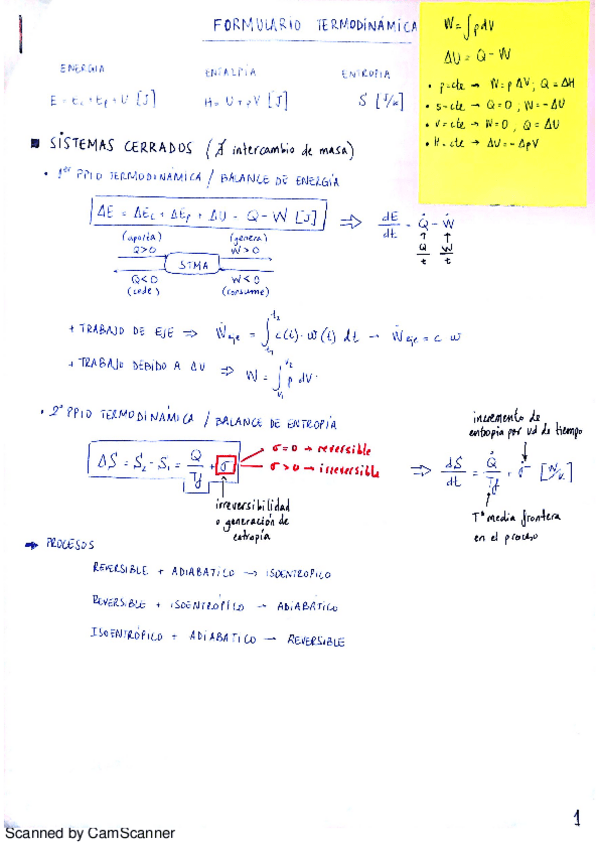 FORMULARIO TERMODINÁMICA
W = ∫pdV
ΔU = Q - W
• p=cte → W = pΔV; Q = ΔH
• s=cte → Q = 0; W = -ΔU
• v=cte → W = 0, Q = ΔU
• H=cte → ΔU = -ΔpV
ENERGIA ENTALPIA ENTROPIA
E = Ec + Ep + U [J] H = U + pV [J] S [J/K]
SISTEMAS CERRADOS (∄ intercambio de masa)
• 1er PPIO TERMODINÁMICA / BALANCE DE ENERGÍA
ΔE = ΔEc + ΔEp + ΔU = Q - W [J] ⇒ dE/dt = Q̇ - Ẇ
Q/t W/t
(aporta) (genera)
Q>0 W>0
STMA
Q<0 W<0
(cede) (consume)
+ TRABAJO DE EJE ⇒ Weje = ∫t1t2 c(t)·w(t) dt → Ẇeje = c w
+ TRABAJO DEBIDO A ΔU ⇒ W = ∫V1V2 p dV
• 2º PPIO TERMODINÁMICA / BALANCE DE ENTROPÍA
ΔS = S2 - S1 = Q/Tf + σ
σ=0 → reversible
σ>0 → irreversible
irreversibilidad
o generación de
entropía
incremento de
entropía por ud de tiempo
⇒ dS/dt = Q̇/Tf + σ̇ [W/K]
Tª media frontera
en el proceso
→ PROCESOS
REVERSIBLE + ADIABATICO → ISOENTROPICO
REVERSIBLE + ISOENTRÓPICO → ADIABÁTICO
ISOENTRÓPICO + ADIABATICO → REVERSIBLE
1
Scanned by CamScanner